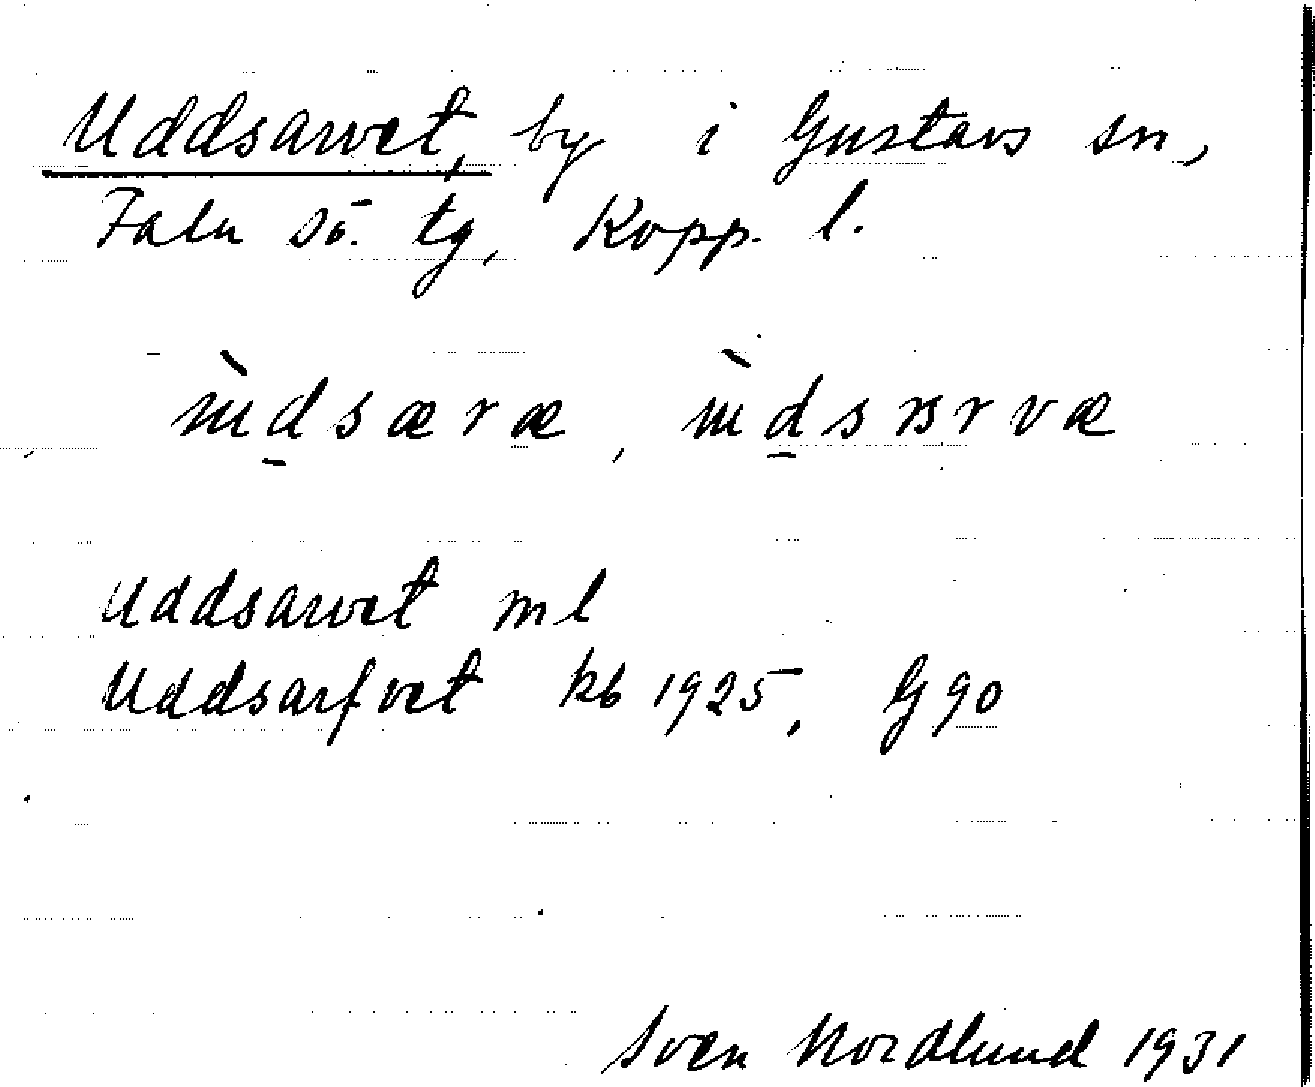 Uddsarvet, by i Gustavs sn,
Falu sö. tg, Kopp. l.
Uddsarvet ml
Uddsarfvet kb 1925, G 90
Sven Nordlund 1931